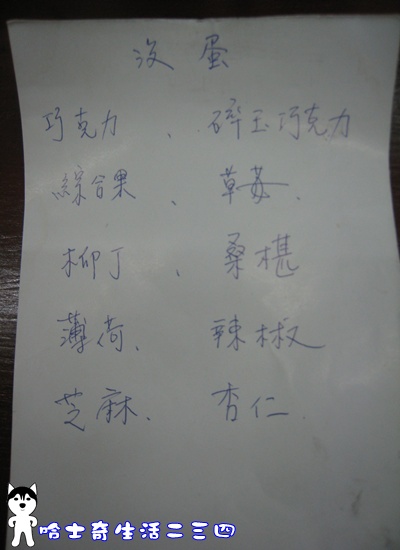 沒蛋
巧克力、碎玉巧克力
綜合果、草莓.
柳丁、桑椹
薄荷、辣椒
芝麻、杏仁.
哈士奇生活二三四